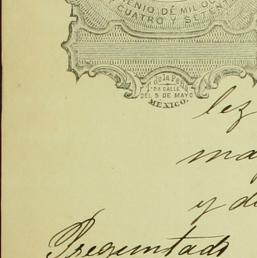 ENIO DE MIL OC
CUATRO Y SETENT
de la Pe
DA CALLE
DEL 5 DE MAYO
MEXICO.
lez
ma
y di
Preguntado